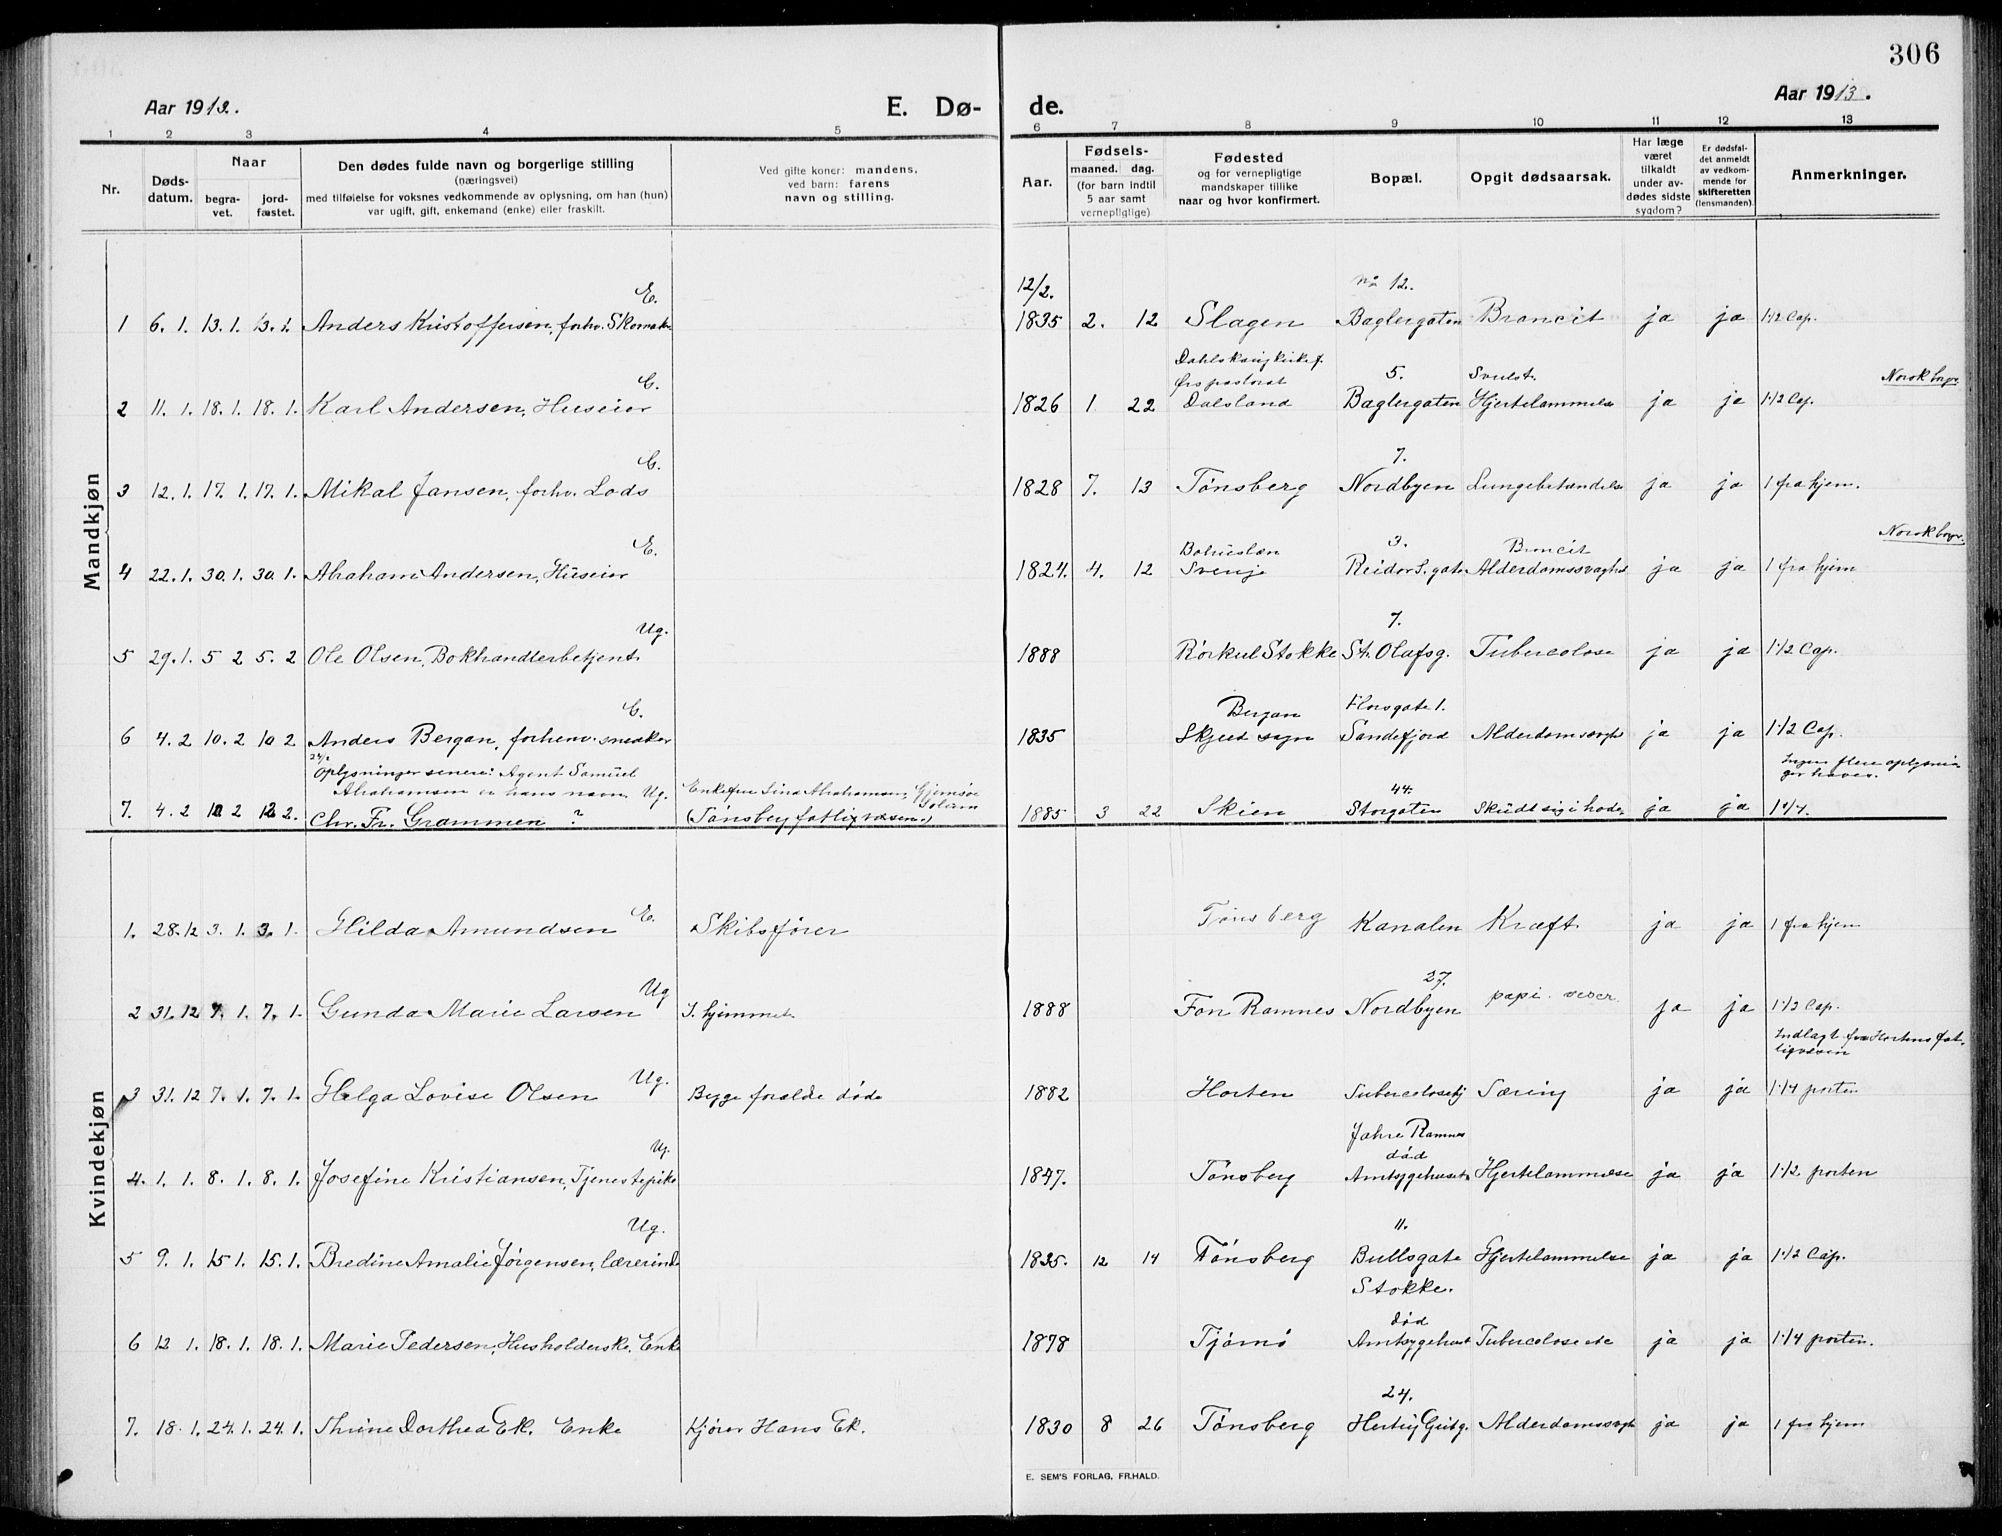 306
Aar 1913.
E. Dø-
de.
Aar 1913.
1 2 3 4 5 6 7 8 9 10 11 12 13
Nr.
Døds-
datum.
Naar
begra-
vet.
jord-
fæstet.
Den dødes fulde navn og borgerlige stilling
(næringsvei)
med tilføielse for voksnes vedkommende av oplysning, om han (hun)
var ugift, gift, enkemand (enke) eller fraskilt.
Ved gifte koner: mandens.
ved barn: farens
navn og stilling.
Aar.
Fødsels-
maaned. dag.
(for barn indtil
5 aar samt
vernepligtige)
Fødested
og for vernepligtige
mandskaper tillike
naar og hvor konfirmert.
Bopæl.
Opgit dødsaarsak.
Har læge
været
tilkaldt
under av-
dødes sidste
sygdom?
Er dødsfal-
det anmeldt
av vedkom-
mende for
skifteretten
(lensmanden).
Anmerkninger.
Mandkjøn
E. 12/2. 12.
1 6. 1. 13. 1. 13. 1. Anders Kristoffersen, forhv. Skomaker 1835 2. 12 Slagen Baglergaten Broncit ja ja 1 1/2 Cap.
pastorat
E. 5. Svulst. Norsk borger
2 11. 1. 18. 1. 18. 1. Karl Andersen, Huseier 1826 1 22 Dalsland Baglergaten Hjertelammelse ja ja 1 1/2 Cap.
E. 7.
3 12. 1. 17. 1. 17. 1. Mikal Jansen, forhv. Lods 1828 7. 13 Tønsberg Nordbyen Lungebetændelse ja ja 1 fra hjem.
E. Bohuslæn 3. Broncit Norsk borger
4 22. 1. 30. 1. 30. 1. Abraham Andersen, Huseier 1824. 4. 12 Sverige Reidar S. gate Alderdomssvaghed ja ja 1 fra hjem
Ug. 7.
5 29. 1. 5 2 5. 2 Ole Olsen, Bokhandlerbetjent 1888 Rørkul Stokke St. Olafsg. Tuberculose ja ja 1 1/2 Cap.
E. Bergan 1.
6 4. 2 10. 2 10 2 Anders Bergan, forhenv. snedker 1835 Skjed sogn Sandefjord Alderdomsvaghed ja ja 1 1/2 Cap.
Oplysninger senere: Agent Samuel Ingen flere oplysnin
Abrahamsen er hans navn Ug. Enkefru Lina Abrahamsen, Gjemsøe Solum 44. ger haves.
7. 4. 2 12 2 12 2. Chr. Fr. Grammen ? (Tønsberg fattigvæsen.) 1885 3 22 Skien Storgaten Skudt sig i hode. ja ja 1 1/4.
Kvindekjøn
1. 28. 12 3. 1. 3. 1. Hilda Amundsen E. Skibsfører Tønsberg Kanalen Kræft ja ja 1 fra hjem
Ug 27.
2 31. 12 7. 1. 7. 1. Gunda Marie Larsen I hjemmet 1888 Fon Ramnes Nordbyen ja ja 1 1/2 Cap.
Indlagt fra Hortens fat-
tigvæsen
Ug.
3 31. 12 7. 1. 7. 1. Helga Lovise Olsen Begge foreldre døde 1882 Horten Tuberculosehj Tæring ja ja 1 1/4 porten
Ug. Jahre Ramnes
død
4. 1. 1. 8. 1. 8. 1. Josefine Kristiansen, Tjenestepike 1847. Tønsberg Amtsygehuset Hjertelammelse ja ja 1 1/2. porten
Ug. 11.
5 9. 1. 15 1. 15. 1. Bredine Amalie Jørgensen, lærerinde 1835. 12 14 Tønsberg Bullsgate Hjertelammelse ja ja 1 1/2 Cap.
Stokke.
død
6 12 1. 18. 1. 18. 1. Marie Pedersen, Husholderske, Enke 1878 Tjømø Amtsygehuset Tuberculose ja ja 1 1/4 porten.
24.
7. 18. 1. 24. 1. 24. 1. Thrine Dorthea Ek. Enke Kjører Hans Ek. 1830 8 26 Tønsberg Hertug Gutg. Alderdomssvaghed ja ja 1 fra hjem
E. SEM'S FORLAG, FR.HALD.